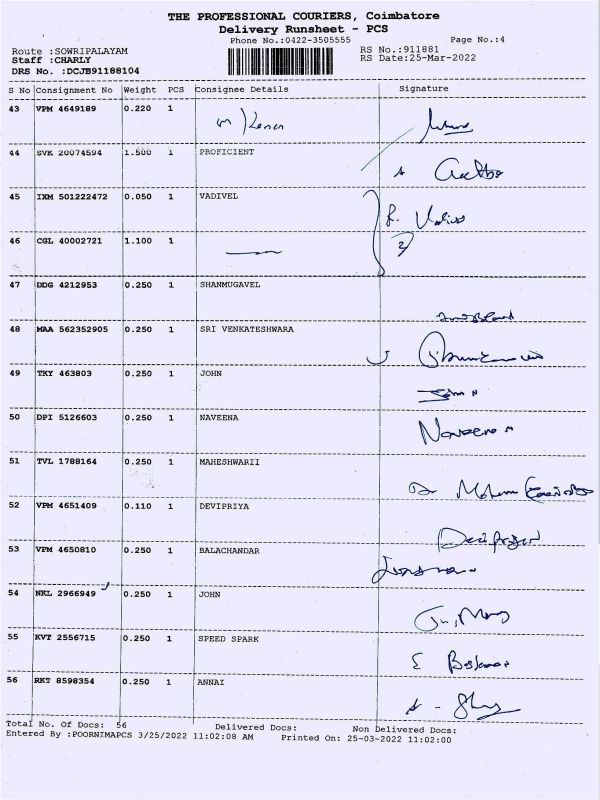 THE PROFESSIONAL COURIERS, Coimbatore
Delivery Runsheet - PCS
Phone No.:0422-3505555 Page No.:4
Route :SOWRIPALAYAM RS No.:911881
Staff :CHARLY RS Date:25-Mar-2022
DRS No. :DCJB91188104
S No Consignment No Weight PCS Consignee Details Signature
43 VPM 4649189 0.220 1
44 SVK 20074594 1.500 1 PROFICIENT
45 IXM 501222472 0.050 1 VADIVEL
46 CGL 40002721 1.100 1
47 DDG 4212953 0.250 1 SHANMUGAVEL
48 MAA 562352905 0.250 1 SRI VENKATESHWARA
49 TKY 463803 0.250 1 JOHN
John
50 DPI 5126603 0.250 1 NAVEENA
Naveena
51 TVL 1788164 0.250 1 MAHESHWARII
52 VPM 4651409 0.110 1 DEVIPRIYA
53 VPM 4650810 0.250 1 BALACHANDAR
54 NKL 2966949 0.250 1 JOHN
55 KVT 2556715 0.250 1 SPEED SPARK
56 RKT 8598354 0.250 1 ANNAI
Total No. Of Docs: 56 Delivered Docs: Non Delivered Docs:
Entered By :POORNIMAPCS 3/25/2022 11:02:08 AM Printed On: 25-03-2022 11:02:00